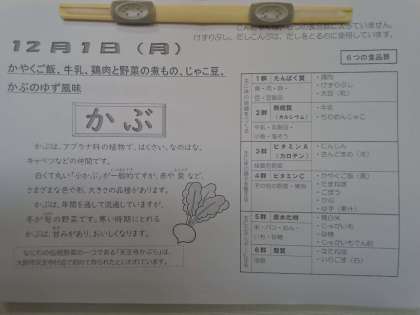 けずりぶし、だしこんぶは、だしをとるのに使用しています。
12月1日(月)
かやくご飯、牛乳、鶏肉と野菜の煮もの、じゃこ豆、
かぶのゆず風味
かぶ
かぶは、アブラナ科の植物で、はくさい、なのはな、
キャベツなどの仲間です。
白くて丸い「小かぶ」が一般的ですが、赤や黄など、
さまざまな色や形、大きさの品種があります。
かぶは、年間を通して流通していますが、
冬が旬の野菜です。寒い時期にとれる
かぶは、甘みがあり、おいしくなります。
なにわの伝統野菜の一つである「天王寺かぶら」は、
6つの食品群
1群 たんぱく質
・鶏肉
・けずりぶし
・大豆(乾)
2群 無機質
(カルシウム)
・牛乳
・ちりめんじゃこ
3群 ビタミンA
(カロテン)
・にんじん
4群 ビタミンC
・かやくご飯(具)
・たまねぎ
・ごぼう
・かぶ
・ゆず(果汁)
5群 炭水化物
・精白米
・じゃがいも
・砂糖
・じゃがいもでん粉
6群 脂質
・なたね油